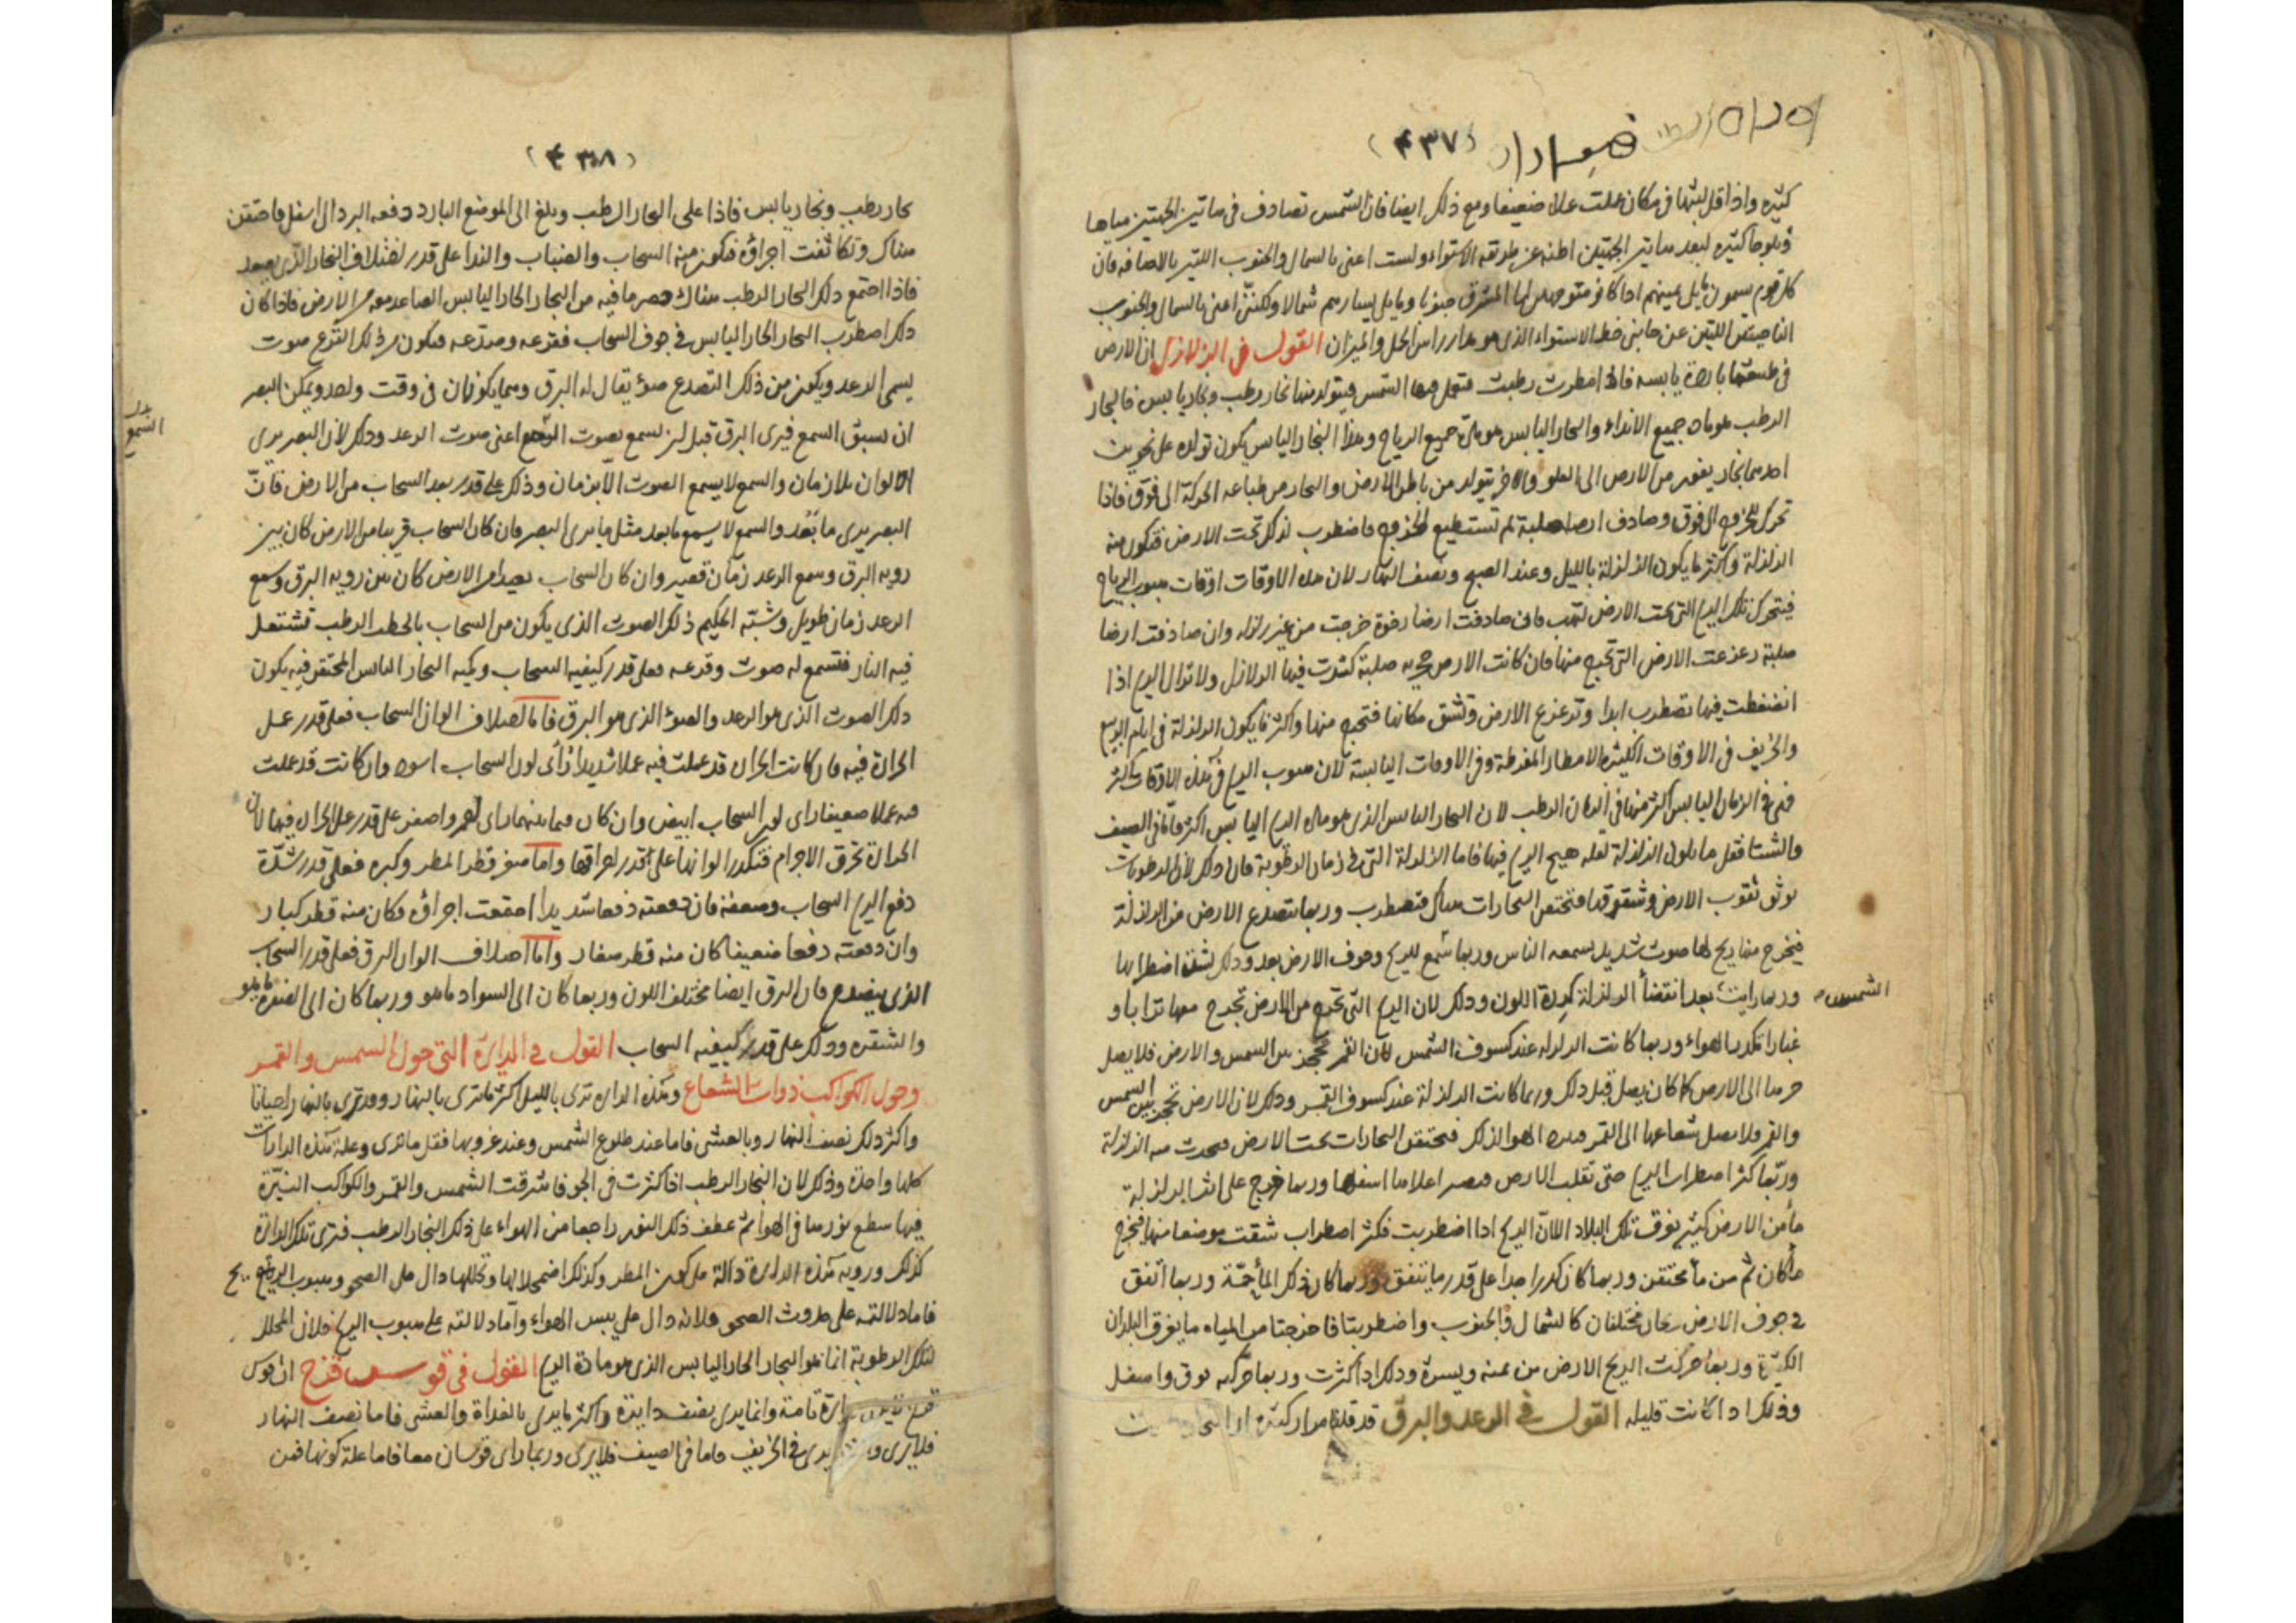 (٤٣٧)
كثيره واذا قل لبثها فى مكان عملت عملا ضعيفا ومع ذلك ايضا فان الشمس تصادف فى هاتين الجهتين مياها
وثلوجا كثيره لبعد هاتين الجهتين عن طريقه الاستواء ولست اعنى بالشمال والجنوب اللتين بالاضافه فان
كل قوم يسمون ما يلى يمينهم اذا كانو متوجهين الى المشرق جنوبا وما يلى يسارهم شمالا ولكننى اعنى بالشمال والجنوب
الناحيتين اللتين عن جانبى خط الاستواء الذى هو مدار راس الحمل والميزان القول فى الزلازل ان الارض
فى طبيعتها بارده يابسه فاذا امطرت رطبت فتعمل فيها الشمس فيتولد منها بخار رطب وبخار يابس فالبخار
الرطب هو ماده جميع الانداء والبخار اليابس هو مادة جميع الرياح وهذا البخار اليابس يكون تولده على نحوين
احدهما بخار يغور من الارض الى العلو والاخر يتولد من باطن الارض والبخار من طباعه الحركة الى فوق فاذا
تحرك للخروج الى فوق وصادف ارضا صلبة لم تستطيع الخروج فاضطرب لذلك تحت الارض فتكون منه
الزلزلة واكثر ما يكون الزلزلة بالليل وعند الصبح ونصف النهار لان هذه الاوقات اوقات هبوب الرياح
فيتحرك تلك الريح التى تحت الارض لتهب فان صادفت ارضا رخوة خرجت من غير زلزله وان صادفت ارضا
صلبة زعزعت الارض التى تخرج منها فان كانت الارض صلبة كثرت فيها الزلازل ولا تزال الريح اذا
انضغطت فيها تضطرب ابدا وتزعزع الارض وتشق مكانها فتخرج منها واكثر ما يكون الزلزلة فى ايام الربيع
والخريف فى الاوقات الكثيرة الامطار المفرطة وفى الاوقات اليابسة لان هبوب الريح فى هذه الاوقات اكثر
فهى فى الزمان اليابس اكثر منها فى الزمان الرطب لان البخار اليابس الذى هو مادة الريح اليابس اكثر فاما فى الصيف
والشتا فقل ما يكون الزلزلة لقله هيج الريح فيها فاما الزلزلة التى فى زمان الرطوبة فان ذلك لان الرطوبات
توثق ثقوب الارض وشقوقها فتختنق البخارات هناك فتضطرب وربما تتصدع الارض من الزلزلة
فيخرج منها ريح لها صوت شديد يسمعه الناس وربما سمع للريح وجوف الارض بعد وذلك لشدة اضطرابها
وربما رايت بعد انقضأ الزلزلة كدرة اللون وذلك لان الريح التى تخرج من الارض تخرج معها ترابا و
الشمس
غبارا تكدر الهواء وربما كانت الزلزله عند كسوف الشمس لان القمر يحجز بين الشمس والارض فلا يصل
حرها الى الارض كما كان يصل قبل ذلك وربما كانت الزلزلة عند كسوف القمر وذلك لان الارض تحجز بين الشمس
والقمر فلا يصل شعاعها الى القمر فيبرد الهوا لذلك فتختنق البخارات تحت الارض فيحدث منه الزلزلة
وربما كثر اضطراب الريح حتى تقلب الارض فيصير اعلاها اسفلها وربما خرج على اثر الزلزلة
مأ من الارض كثير يغرق تلك البلاد لان الريح اذا اضطربت فكثر اضطراب شقت موضعا منها فخرج
ما كان ثم من مأ مختنق وربما كان كدرا جدا على قدر ما يتفق وربما كان ذلك المأ حمة وربما اتفق
فى جوف الارض ريحان مختلفان كالشمال والجنوب واضطربتا فاخرجتا من المياه ما يغرق البلدان
الكثيرة وربما حركت الريح الارض من يمنه ويسرة وذلك اذا كثرت وربما حركته فوق واسفل
وذلك اذا كانت قليله القول فى الرعد والبرق قد قلنا مرارا كثيره ان
(٤٣٨)
بخار رطب وبخار يابس فاذا على البخار الرطب وبلغ الى الموضع البارد دفعه البرد الى اسفل فاحتقن
هناك وتكاثفت اجزاؤه فيكون منه السحاب والضباب والندا على قدر اختلاف البخار الذى يصعد
فاذا اجتمع ذلك البخار الرطب هناك حصر ما فيه من البخار الحار اليابس الصاعد معه من الارض فاذا كان
ذلك اضطرب البخار الحار اليابس فى جوف السحاب فقرعه وصدعه فيكون من ذلك القرع صوت
يسمى الرعد ويكون من ذلك التصدع ضوء يقال له البرق وهما يكونان فى وقت واحد ويمكن البصر
ان يسبق السمع فيرى البرق قبل ان يسمع بصوت اعنى صوت الرعد وذلك لان البصر يرى
السمع
الالوان بلا زمان والسمع لا يسمع الصوت الا بزمان وذلك على قدر بعد السحاب من الارض فان
البصر يرى ما بعد والسمع لا يسمع ما بعد مثل ما يرى البصر فان كان السحاب قريبا من الارض كان بين
رويه البرق وسمع الرعد زمان قصير وان كان السحاب بعيدا من الارض كان بين رويه البرق وسمع
الرعد زمان طويل وشبه الحكيم ذلك الصوت الذى يكون من السحاب بالحطب الرطب تشتعل
فيه النار فتسمع له صوت وقرعه فعلى قدر كيفيه السحاب وكميه البخار اليابس المحتقن فيه يكون
ذلك الصوت الذى هو الرعد والضوء الذى هو البرق فاما اختلاف الوان السحاب فعلى قدر عمل
الحرارة فيه فان كانت الحراره قد عملت فيه عملا شديدا رأى لون السحاب اسود وان كانت قد عملت
فيه عملا ضعيفا راى لون السحاب ابيض وان كان فيما بينهما راى احمر واصفر على قدر عمل الحراره فيها لان
الحرارة تحرق الاجرام فتكدر الوانها على قدر احراقها واما صغر قطر المطر وكبره فعلى قدر شدة
دفع الريح السحاب وضعفه فان دفعته دفعا شديدا اجتمعت اجزاؤه فكان منه قطر كبار
وان دفعته دفعا ضعيفا كان منه قطر صغار واما اختلاف الوان البرق فعلى قدر السحاب
الذى ينصدع فان البرق ايضا مختلف اللون وربما كان الى السواد ما هو وربما كان الى الصفرة ما هو
والشقره وذلك على قدر كيفيه السحاب القول فى الدايرة التى حول الشمس والقمر
وحول الكواكب ذوات الشعاع وهذه الدايره ترى بالليل اكثر ما ترى بالنهار وقد ترى بالنهار احيانا
واكثر ذلك نصف النهار وبالعشى فاما عند طلوع الشمس وعند غروبها فقل ما ترى وعلة هذه الدارات
كلها واحدة وذلك لان البخار الرطب اذا كثرت فى الجو فاشرقت الشمس والقمر والكواكب النيرة
فيها سطع نورها فى الهوأ ثم عطف ذلك النور راجعا من الهواء على ذلك البخار الرطب فترى تلك الدايرة
كذلك ورويه هذه الدايرة دالة على كون المطر وكذلك اضمحلالها وتحللها دال على الصحو وهبوب الريح
فاما دلالته على حدوث الصحو فلانه دال على يبس الهواء واما دلالته على هبوب الريح فلان المحلل
لتلك الرطوبة انما هو البخار الحار اليابس الذى هو مادة الريح القول فى قوس قزح ان قوس
قزح دايرة تامة وانما يرى بنصف دايرة واكثر ما يرى بالغداة والعشى فاما نصف النهار
فلا يرى يرى فى الخريف فاما فى الصيف فلا يرى وربما راى قوسان معا فاما علة كونها فمن